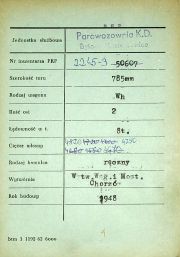 Jednostka służbowa
Parowozownia K.D.
Nr inwentarza PKP
2245-9 50607
Szerokość toru
785mm
Rodzaj wagonu
Wh
Ilość osi
2
Ładowność w t.
8t.
Ciężar własny
4250
Rodzaj hamulca
ręczny
Wytwórnia
W-tw.Wag.i Most.
Chorzó-
Rok budowy
1948